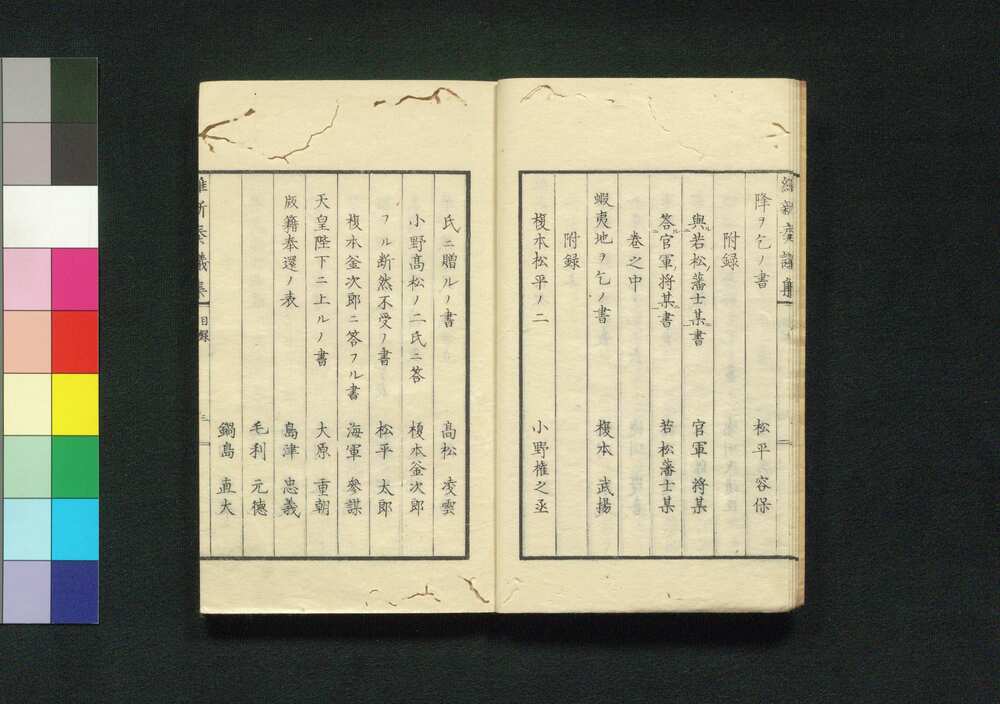 維新奏議集
降ヲ乞ノ書 松平 容保
附録
與若松ノ藩士某書 官軍 將某
答官軍ノ將某書 若松藩士某
巻之中
蝦夷地ヲ乞ノ書 榎本 武揚
附録
榎本松平ノ二 小野権之丞
氏ニ贈ルノ書 高松 凌雲
小野髙松ノ二氏ニ答 榎本釜次郎
フル断然不受ノ書 松平 太郎
榎本釜次郎ニ答フル書 海軍 參謀
天皇陛下ニ上ルノ書 大原 重朝
版籍奉還ノ表 島津 忠義
毛利 元徳
鍋島 直大
維新奏議集 目録 三